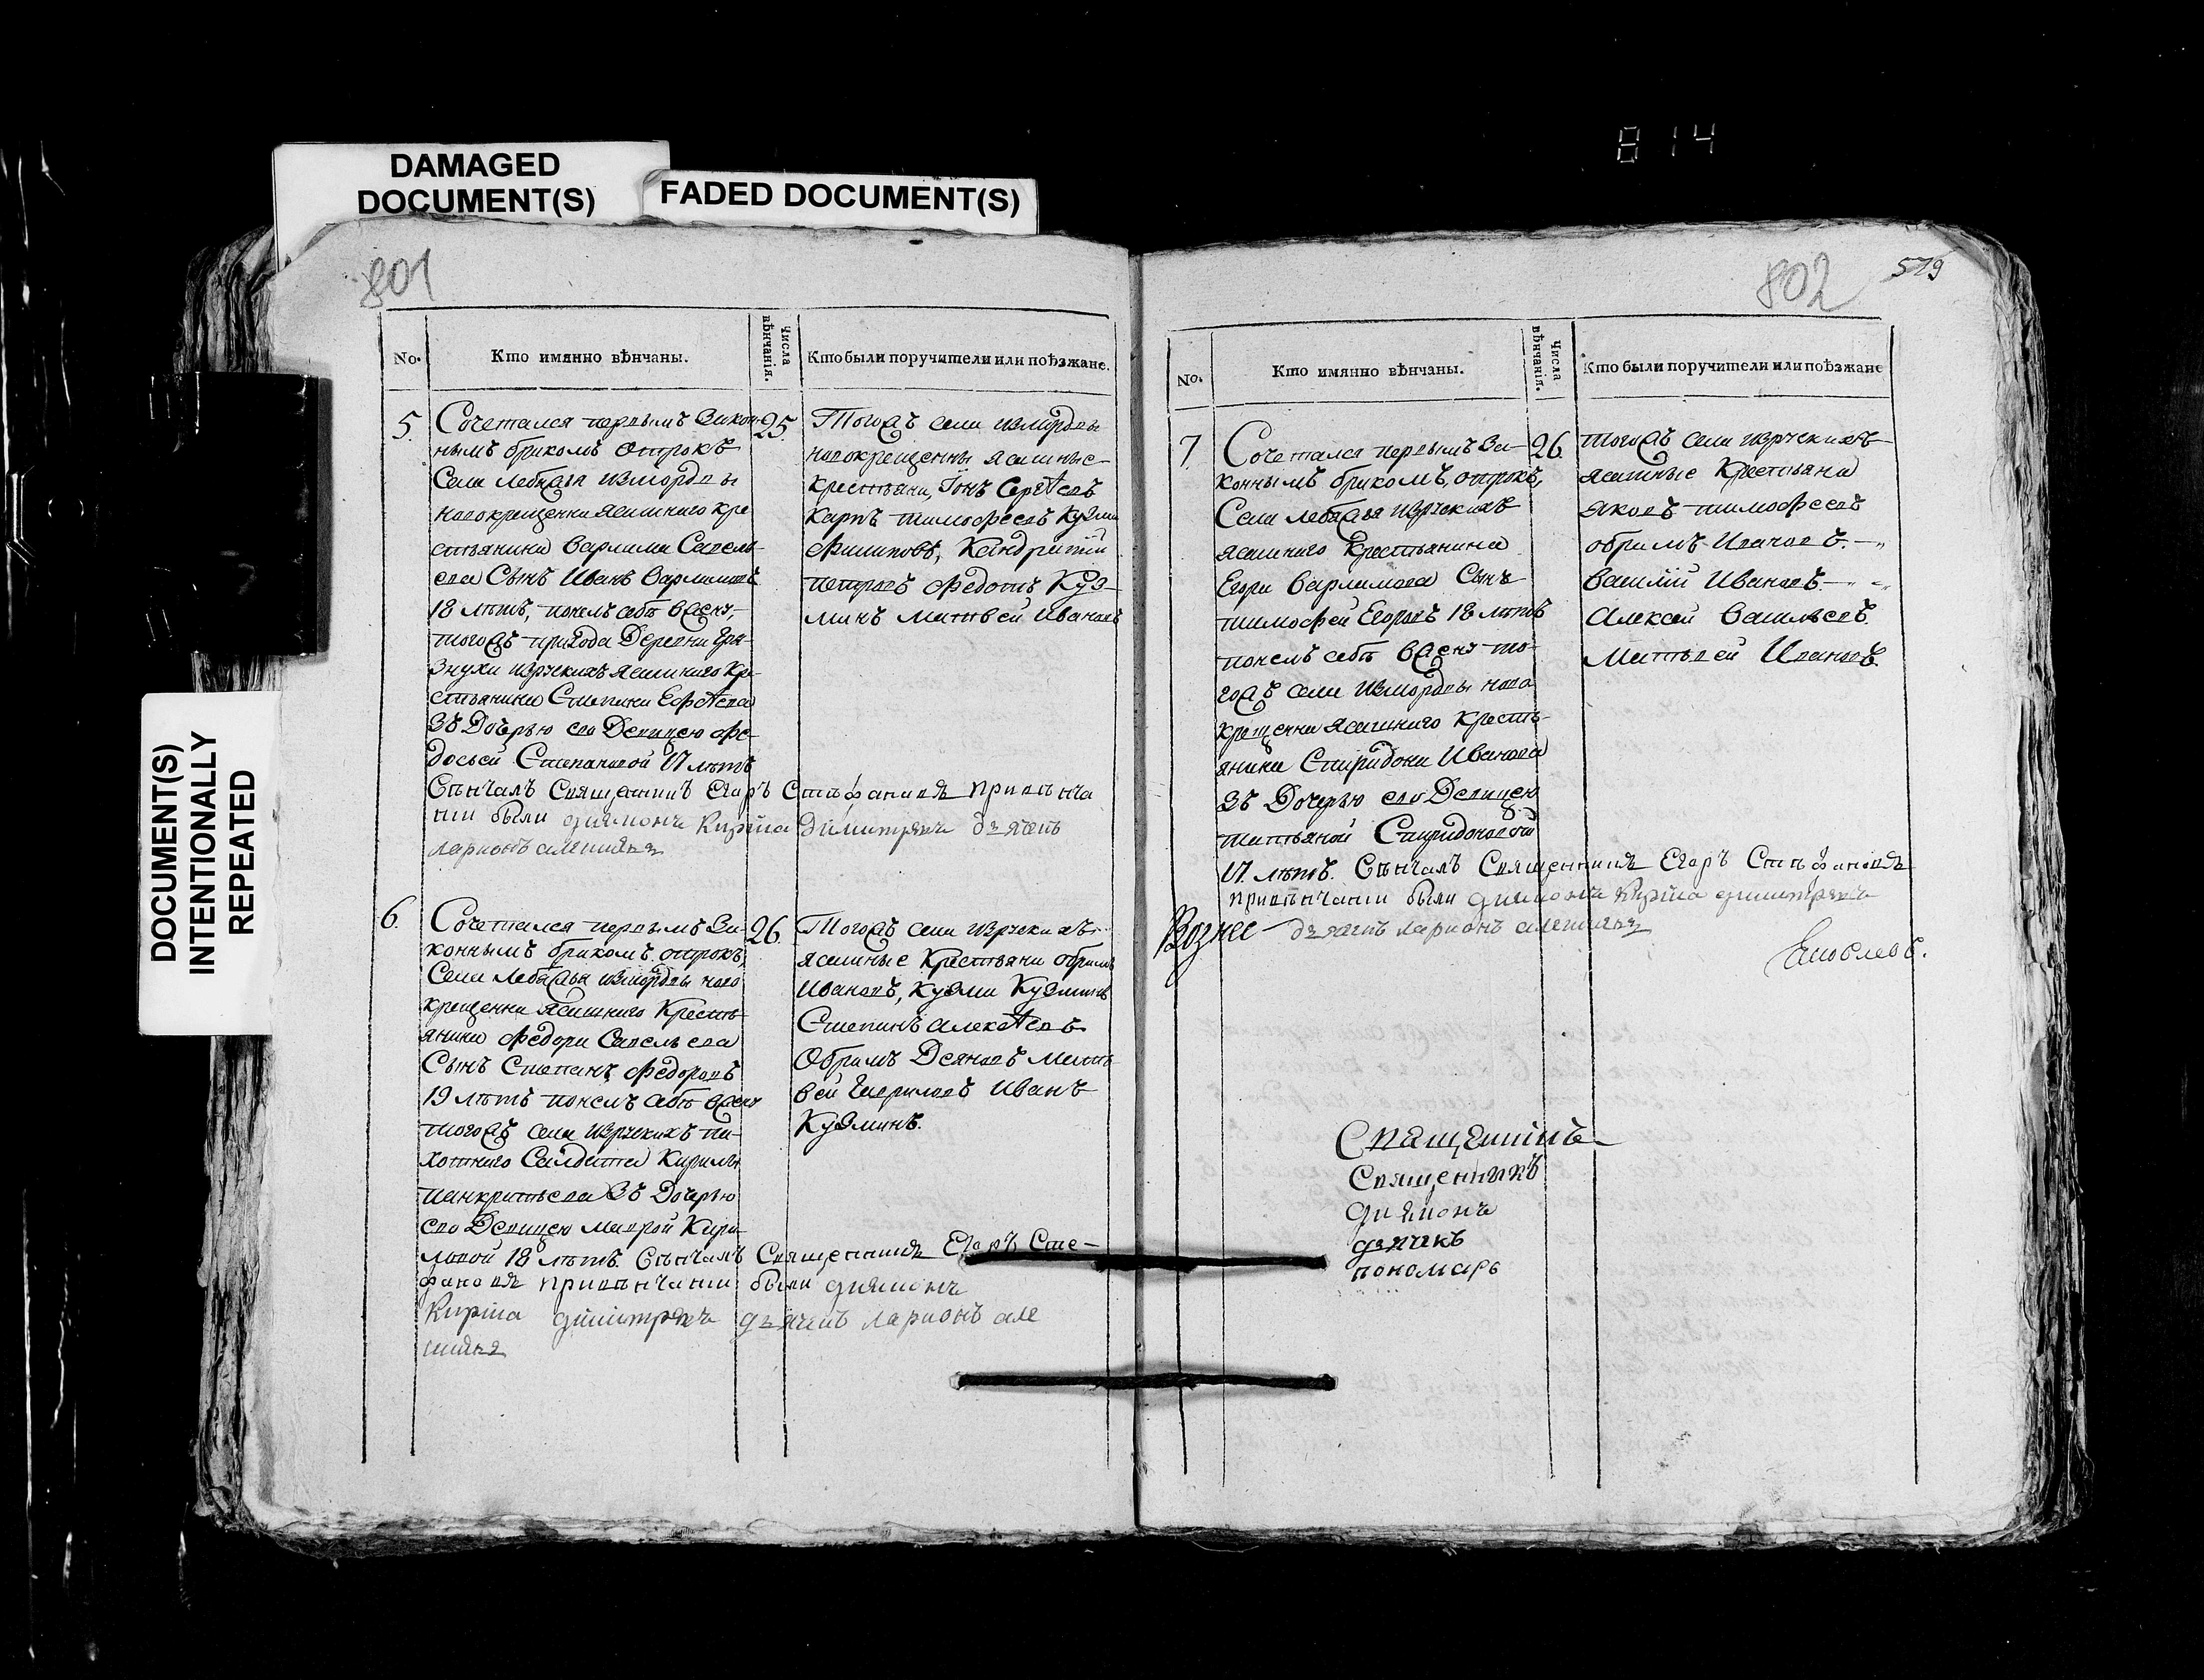 DAMAGED
DOCUMENT(S)
FADED DOCUMENT(S)
DOCUMENT(S)
INTENTIONALLY
REPEATED
814
801
No.
Кто имянно вѣнчаны.
Числа
вѣнчанія.
Кто были поручители или поѣзжане.
5.
Сочетался первымъ закон-
нымъ бракомъ отрокъ
Села Лебяжья измордвы
новокрещенна ясашнаго кре
стьянина Варлама Савель
ева Сынъ Иванъ Варламовъ
18 лѣтъ, понелъ себѣ в
тогожъ прихода Деревни Гря-
знухи изрускихъ ясашнаго кре-
стьянина Степана
зъ Дочерью ево Девицею Фе-
досьей Степановой 17 лѣтъ
Вѣнчалъ Священникъ Егоръ Стефановъ при вѣнча
нии были диаконъ Кирила Димитриевъ дьячекъ
ларионъ
25
Тогожъ села измордвы
новокрещенны ясашные
крестьяна, Сергеевъ
Карпъ тимофеевъ Кузма
Филиповъ, Кандратий
петровъ Федотъ Куз-
минъ Матвей Ивановъ
6.
Сочетался первымъ За-
коннымъ бракомъ отрокъ,
Села Лебяжья измордвы ново
крещенна ясашнаго Кресть
янина Федора Савельева
Сынъ Степанъ Федоровъ
19 лѣтъ понелъ себѣ в
тогожъ села изрускихъ па-
хотнаго Салдата Кирилы
панкратьева зъ Дочерью
ево Девицею маврой Кири-
ловой 18 лѣтъ. Вѣнчалъ Священникъ Егоръ Сте-
фановъ при вѣнчании были диаконъ
Кирила димитриевъ дьячекъ ларионъ
26
Тогожъ села изрускихъ
ясашные Крестьяна обрамъ
Ивановъ, Кузма Кузминъ
Степанъ алексеевъ
Обрамъ Деяновъ Мат
вей Гавриловъ Иванъ
Кузминъ.
802
519
No.
Кто имянно вѣнчаны.
Числа
вѣнчанія.
Кто были поручители или поѣзжане
7
Сочетался первымъ За-
коннымъ бракомъ, отрокъ,
Села лебяжья изрускихъ
ясашнаго Крестьянина
Егора Варламова Сынъ
тимофей Егоровъ 18 лѣтъ
понелъ себѣ в то-
гожъ села измордвы ново
крещенна ясашнаго кресть-
янина Спиридона Иванова
зъ Дочерью ево Девицею
татьяной Спиридоновой
17. лѣтъ. Вѣнчалъ Священникъ Егоръ Стефановъ
при вѣнчании были диаконъ Кирила димитриевъ
Вознес дьячекъ ларионъ
26
тогожъ села изрускихъ
ясашные Крестьяна
яковъ тимофеевъ
обрамъ Ивановъ.
Василий Ивановъ.
Алексей Васильевъ.
Матвей Ивановъ.
Яковлевъ.
Священникъ
Священникъ
диаконъ
дьячекъ
пономарь